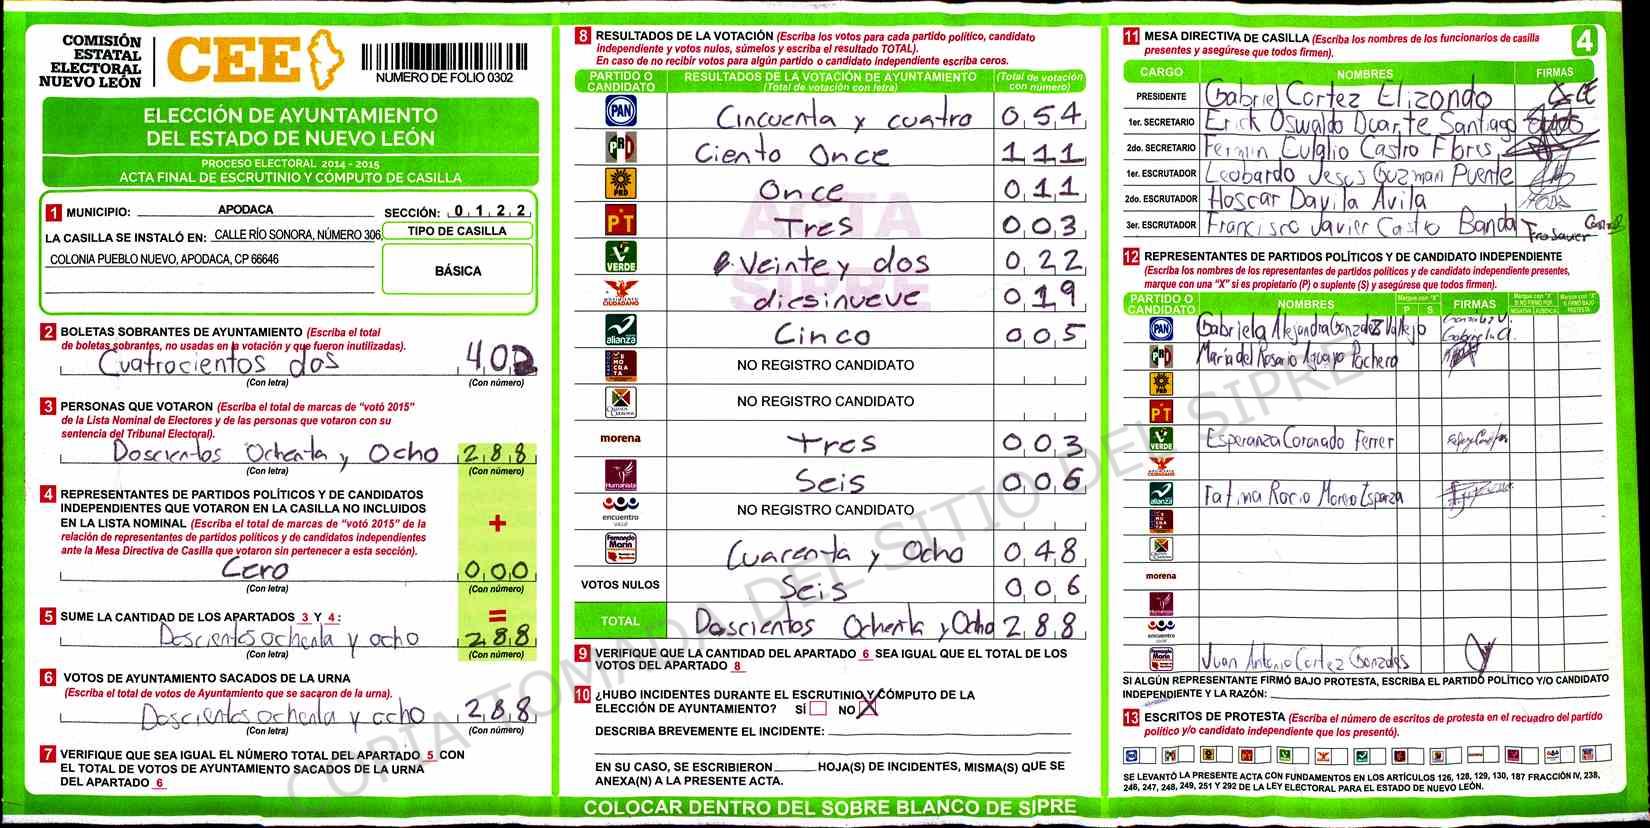 COMISIÓN
ESTATAL
ELECTORAL
NUEVO LEÓN
CEE
NUMERO DE FOLIO 0302
ELECCIÓN DE AYUNTAMIENTO
DEL ESTADO DE NUEVO LEÓN
PROCESO ELECTORAL 2014 - 2015
ACTA FINAL DE ESCRUTINIO Y CÓMPUTO DE CASILLA
1 MUNICIPIO: APODACA SECCIÓN: 0 1 2 2
LA CASILLA SE INSTALÓ EN: CALLE RÍO SONORA, NÚMERO 306,
COLONIA PUEBLO NUEVO, APODACA, CP 66646
TIPO DE CASILLA
BÁSICA
2 BOLETAS SOBRANTES DE AYUNTAMIENTO (Escriba el total
de boletas sobrantes, no usadas en la votación y que fueron inutilizadas).
Cuatrocientos dos 402
(Con letra) (Con número)
3 PERSONAS QUE VOTARON (Escriba el total de marcas de "votó 2015"
de la Lista Nominal de Electores y de las personas que votaron con su
sentencia del Tribunal Electoral).
Doscientos Ochenta y Ocho 288
(Con letra) (Con número)
4 REPRESENTANTES DE PARTIDOS POLÍTICOS Y DE CANDIDATOS
INDEPENDIENTES QUE VOTARON EN LA CASILLA NO INCLUIDOS
EN LA LISTA NOMINAL (Escriba el total de marcas de "votó 2015" de la
relación de representantes de partidos políticos y de candidatos independientes
ante la Mesa Directiva de Casilla que votaron sin pertenecer a esta sección).
+
Cero 000
(Con letra) (Con número)
5 SUME LA CANTIDAD DE LOS APARTADOS 3 Y 4: =
Doscientos ochenta y ocho 288
(Con letra) (Con número)
6 VOTOS DE AYUNTAMIENTO SACADOS DE LA URNA
(Escriba el total de votos de Ayuntamiento que se sacaron de la urna).
Doscientos ochenta y ocho 288
(Con letra) (Con número)
7 VERIFIQUE QUE SEA IGUAL EL NÚMERO TOTAL DEL APARTADO 5 CON
EL TOTAL DE VOTOS DE AYUNTAMIENTO SACADOS DE LA URNA
DEL APARTADO 6
8 RESULTADOS DE LA VOTACIÓN (Escriba los votos para cada partido político, candidato
independiente y votos nulos, súmelos y escriba el resultado TOTAL).
En caso de no recibir votos para algún partido o candidato independiente escriba ceros.
PARTIDO O CANDIDATO RESULTADOS DE LA VOTACIÓN DE AYUNTAMIENTO (Total de votación con letra) (Total de votación con número)
PAN Cincuenta y cuatro 054
PRD Ciento Once 111
PRD Once 011
PT Tres 003
VERDE Veinte y dos 022
MOVIMIENTO CIUDADANO diesinueve 019
alianza Cinco 005
DEMOCRATA NO REGISTRO CANDIDATO
NO REGISTRO CANDIDATO
morena tres 003
Humanista Seis 006
encuentro social NO REGISTRO CANDIDATO
Fernando Marín Cuarenta y Ocho 048
VOTOS NULOS Seis 006
TOTAL Doscientos Ochenta y Ocho 288
ACTA
SIPRE
9 VERIFIQUE QUE LA CANTIDAD DEL APARTADO 6 SEA IGUAL QUE EL TOTAL DE LOS
VOTOS DEL APARTADO 8
10 ¿HUBO INCIDENTES DURANTE EL ESCRUTINIO Y CÓMPUTO DE LA
ELECCIÓN DE AYUNTAMIENTO? SÍ NO X
DESCRIBA BREVEMENTE EL INCIDENTE:
EN SU CASO, SE ESCRIBIERON HOJA(S) DE INCIDENTES, MISMA(S) QUE SE
ANEXA(N) A LA PRESENTE ACTA.
COLOCAR DENTRO DEL SOBRE BLANCO DE SIPRE
11 MESA DIRECTIVA DE CASILLA (Escriba los nombres de los funcionarios de casilla
presentes y asegúrese que todos firmen).
4
CARGO NOMBRES FIRMAS
PRESIDENTE Gabriel Cortez Elizondo
1er. SECRETARIO Erick Oswaldo Duarte Santiago
2do. SECRETARIO Fermin Eulglio Castro Flores
1er. ESCRUTADOR Leobardo Jesus Guzman Puente
2do. ESCRUTADOR Hoscar Davila Avila
3er. ESCRUTADOR Francisco Javier Castro Banda
12 REPRESENTANTES DE PARTIDOS POLÍTICOS Y DE CANDIDATO INDEPENDIENTE
(Escriba los nombres de los representantes de partidos políticos y de candidato independiente presentes,
marque con una "X" si es propietario (P) o suplente (S) y asegúrese que todos firmen).
PARTIDO O CANDIDATO NOMBRES Marque con "X" P S FIRMAS Marque con "X" SI NO FIRMÓ POR: NEGATIVA AUSENCIA Marque con "X" SI FIRMÓ BAJO PROTESTA
PAN Gabriela Alejandra Gonzalez Vallejo
PRD Maria del Rosario Aguayo Pacheco
PRD
PT
VERDE Esperanza Coronado Ferrer
alianza Fatima Rocio Moreno Esparza
morena
encuentro
Juan Antonio Cortez Gonzales
SI ALGÚN REPRESENTANTE FIRMÓ BAJO PROTESTA, ESCRIBA EL PARTIDO POLÍTICO Y/O CANDIDATO
INDEPENDIENTE Y LA RAZÓN:
13 ESCRITOS DE PROTESTA (Escriba el número de escritos de protesta en el recuadro del partido
político y/o candidato independiente que los presentó).
SE LEVANTÓ LA PRESENTE ACTA CON FUNDAMENTOS EN LOS ARTÍCULOS 126, 128, 129, 130, 187 FRACCIÓN IV, 238,
246, 247, 248, 249, 251 Y 292 DE LA LEY ELECTORAL PARA EL ESTADO DE NUEVO LEÓN.
COPIA TOMADA DEL SITIO DEL SIPRE